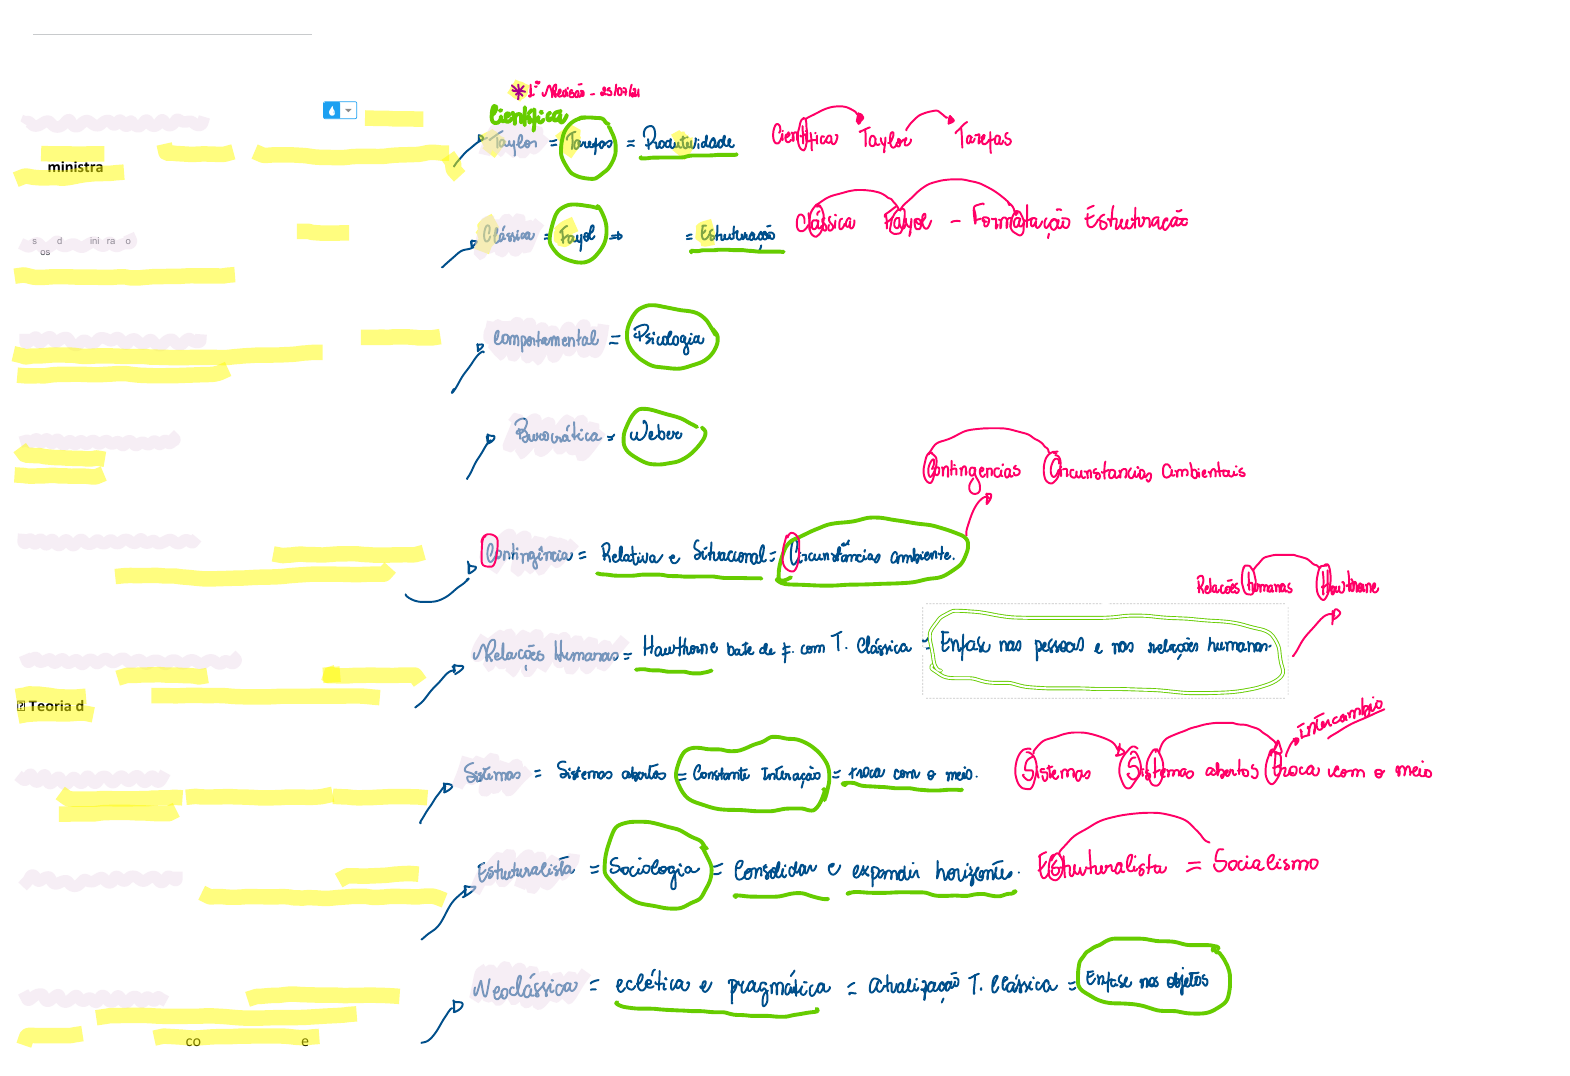 * 1ª Revisão - 25/07/21
Científica
Taylor = Tarefas = Produtividade
Científica Taylor Tarefas
ministra
Clássica = Fayol ⇒ = Estruturação
Clássica Fayol - Formatação Estruturação
s d ini ra o
os
Comportamental = Psicologia
Burocrática = Weber
Contingencias Circunstancias Ambientais
Contingência = Relativa e Situacional = Circunstâncias ambiente.
Relações humanas Hawthorne
Relações Humanas = Hawthorne bate de f. com T. Clássica = Enfase nas pessoas e nas relações humanas.
Teoria d
Intercambio
Sistemas = Sistemas abertos = Constante Interação = troca com o meio.
Sistemas Sistemas abertos troca com o meio
Estruturalista = Sociologia = Consolidar e expandir horizonte.
Estruturalista = Socialismo
Neoclássica = eclética e pragmática = atualização T. Clássica = Enfase nos objetos
co e